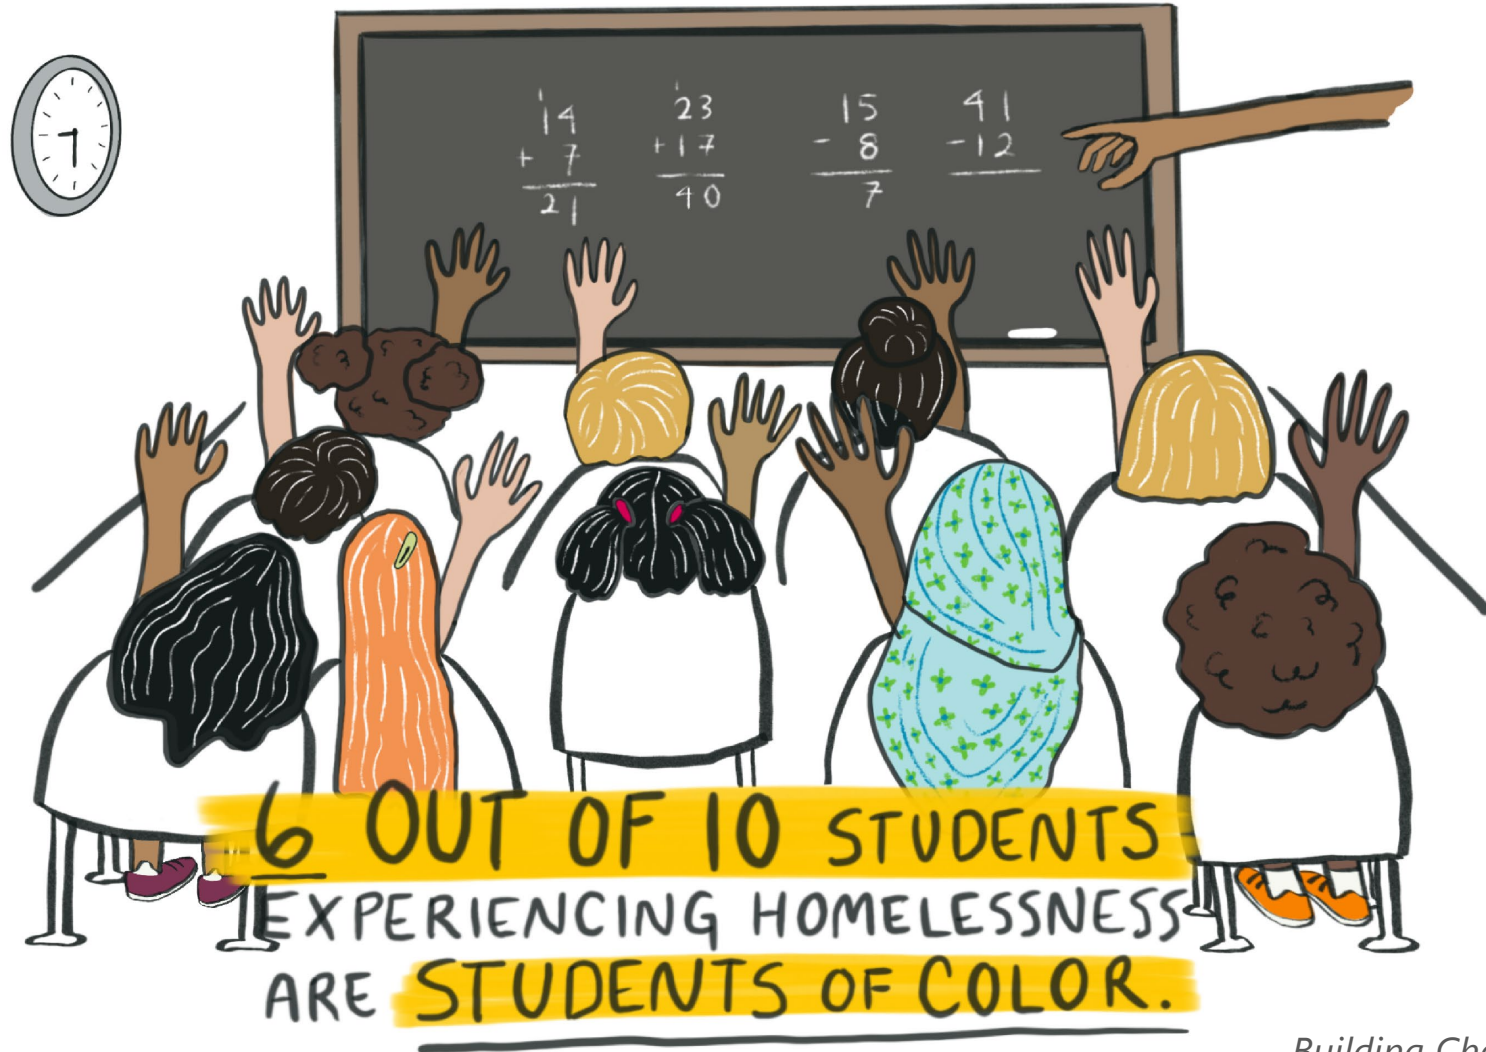 1 1
14 23 15 41
+ 7 +17 - 8 -12
21 40 7
6 OUT OF 10 STUDENTS
EXPERIENCING HOMELESSNESS
ARE STUDENTS OF COLOR.
Building